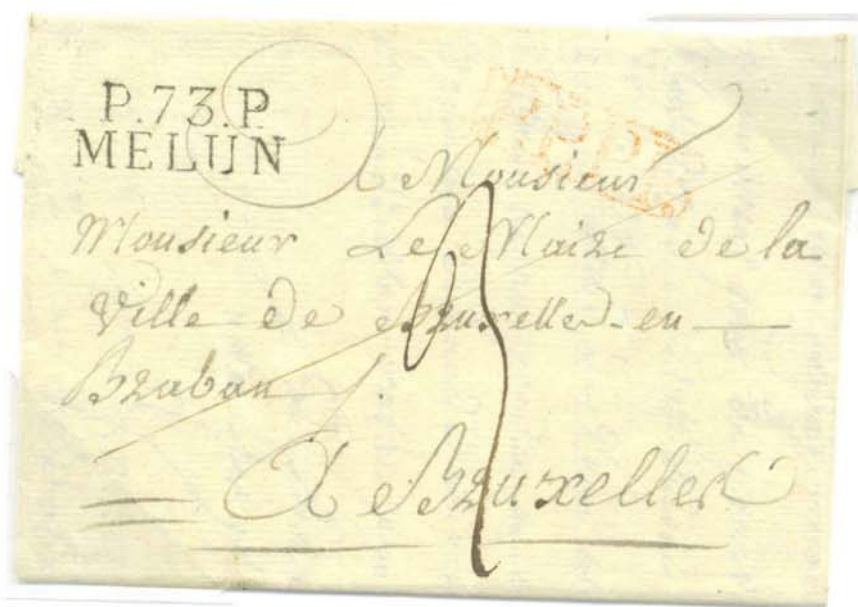 P.73.P
MELUN
P.P.P.P.
A Monsieur
Monsieur Le Maire de la
Ville de Bruxelles en
Braban
A Bruxelles